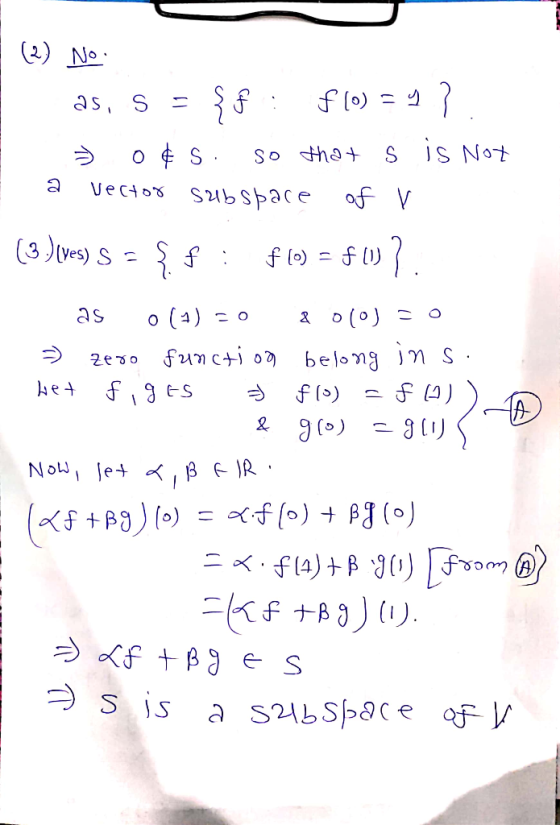 (2) No.
as, S = { f : f(0) = 1 }
⇒ 0 ∉ S. so that S is Not
a vector subspace of V
(3.)(Yes) S = { f : f(0) = f(1) }.
as 0(1) = 0 & 0(0) = 0
⇒ zero function belong in S.
Let f, g ∈ S ⇒ f(0) = f(1)
& g(0) = g(1) } — Ⓐ
Now, let α, β ∈ IR.
(αf + βg)(0) = α.f(0) + βg(0)
= α. f(1) + β.g(1) [from Ⓐ}
= (αf + βg)(1).
⇒ αf + βg ∈ S
⇒ S is a subspace of V